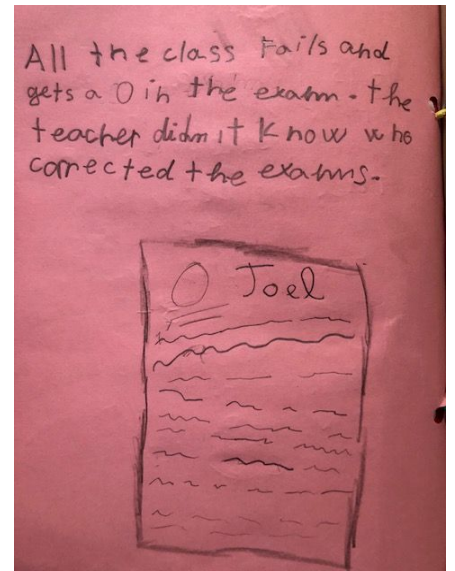 All the class Fails and
gets a 0 in the exahm. the
teacher didn it Know who
corrected the exahms.
0 Joel